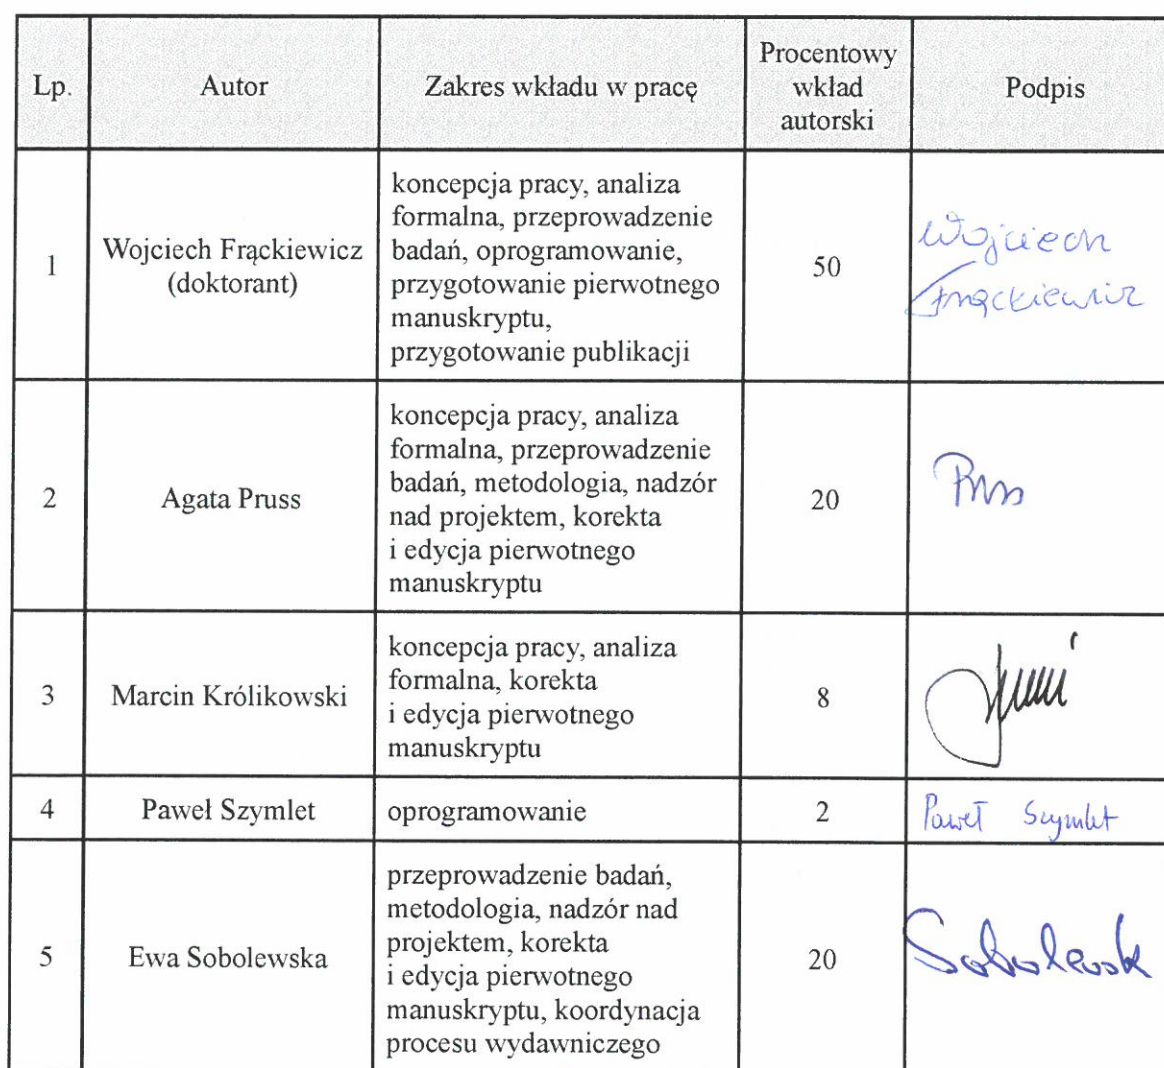 Lp.
Autor
Zakres wkładu w pracę
Procentowy
wkład
autorski
Podpis
1
Wojciech Frąckiewicz
(doktorant)
koncepcja pracy, analiza
formalna, przeprowadzenie
badań, oprogramowanie,
przygotowanie pierwotnego
manuskryptu,
przygotowanie publikacji
50
Wojciech
Frąckiewicz
2
Agata Pruss
koncepcja pracy, analiza
formalna, przeprowadzenie
badań, metodologia, nadzór
nad projektem, korekta
i edycja pierwotnego
manuskryptu
20
Pruss
3
Marcin Królikowski
koncepcja pracy, analiza
formalna, korekta
i edycja pierwotnego
manuskryptu
8
4
Paweł Szymlet
oprogramowanie
2
Paweł Szymlet
5
Ewa Sobolewska
przeprowadzenie badań,
metodologia, nadzór nad
projektem, korekta
i edycja pierwotnego
manuskryptu, koordynacja
procesu wydawniczego
20
Sobolewsk